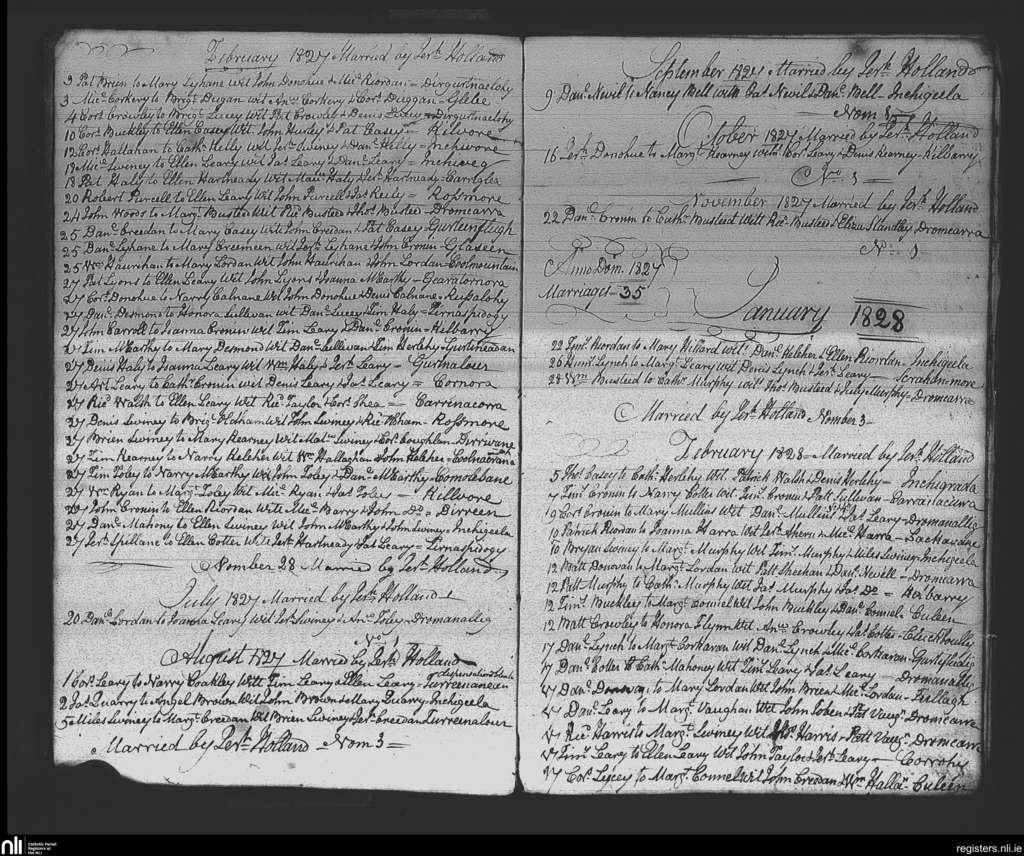 February 1827 Married by Jerh. Holland
3 Pat Brien to Mary Lyhane wit John Donohue & Mic Riordan = Dirgurtnaclohy
3 Mic. Corkery to Brigt. Dugan wit Anw. Corkery & Corn. Duggan = Glebe
4 Corn. Crowley to Brigt. Lucey Wit Pat Crowley & Denis Lucey = Dirgurtnaclohy
10 Corn. Buckley to Ellen Casey Wit John Hurley & Pat Casey = Kilvore
Corn. Hallahan to Cath. Kelly Wit Jer. Swiney & Danl. Kelly = Inchivore
Mic. Swiney to Ellen Leary Wit Jas. Leary & Danl. Leary = Inchiveg
18 Pat Haly to Ellen Hartneady Wit Haly & Jer. Hartneady = Carriglea
20 Robert Purcell to Ellen Leary Wit John Purcell & Jas. = Rossmore
24 John Woods to Margt. Busteed Wit Ric Busteed & Thos. Busteed = Dromcarra
25 Danl. Creedan to Mary Casey Wit John Creedan & Pat Casey
25 Danl. Lyhane to Mary Creemeen wit Lyhane & John Cronin = Glaseen
25 Wm. Hourihan to Mary Lordan Wit John Hourihan & John Lordan = Coolmountain
27 Pat Lyons to Ellen Leary Wit John Lyons & Joanna McCarthy = Gearatornora
27 Corn. Donohue to Narry Calnane Wit John Donohue & Denis Calnane
27 Danl. Desmond to Honora Sullivan wit Danl. Lucey & Tim Haly = Tirnaspidogy
27 John Carroll to Joanna Cronin wit Tim Leary & Danl. Cronin = Kilbarry
27 Tim McCarthy to Mary Desmond Wit Danl. Sullivan & Tim Herlehy
27 Denis Haly to Joanna Leary Wit Wm. Haly & Jer. Leary = Gurnalour
27 Art Leary to Cath. Cronin wit Denis Leary & Jas. Leary = Cornora
27 Ric. Walsh to Ellen Leary Wit Ric. Taylor & Corn. Shea = Carrinacorra
27 Denis Swiney to Brigt. Oldham wit John Swiney & Ric. Oldham = Rossmore
27 Brien Swiney to Mary Kearney Wit Swiney & Corn. Coughlan = Dirrivane
27 Tim Kearney to Narry Kelcher Wit Wm. Hallaghan & John Kelcher
27 Tim Foley to Narry McCarthy Wit John Foley & Danl. McCarthy = Comolebane
27 Wm. Ryan to Margt. Foley Wit Mic. Ryan & Jas. Foley = Killvore
27 John Cronin to Ellen Riordan Witt Mic. Barry & John Do. = Dirreen
27 Danl. Mahony to Ellen Swiney Wit John McCarthy & John Swiney = Inchigeela
27 Jer. Spillane to Ellen Cotter Wit Jer. Hartneady & Jas. Leary = Tirnaspidogy
Nomber 28 Married by Jer. Holland
July 1827 Married by Jerh. Holland
20 Danl. Lordan to Joanna Leary Wit Jer. Swiney & Anw. Foley = Dromanallig
No. 1
August 1827 Married by Jerh. Holland
1 Corn. Leary to Narry Coakley Witt Tim Leary & Ellen Leary
2 Jas. Quarry to Angel Brown Wit John Brown & Mary Quarry = Inchigeela
5 Miles Swiney to Margt. Creedan Wit Brien Swiney & Jer. Creedan
Married by Jerh. Holland = Nom 3 =
September 1827 Married by Jerh. Holland
9 Danl. Nevil to Nancy Mell with Pat Nevil & Danl. Mell = Inchigeela
Nom 1
October 1827 Married by Jer. Holland
16 Jerh. Donohue to Margt. Kearney with Corn. Leary & Denis Kearney = Kilbarry
No. 1
November 1827 Married by Jer. Holland
22 Danl. Cronin to Cath. Busteed Witt Ric. Busteed & Eliza Standley = Dromcarra
No. 1
Anno Dom. 1827
Marriages = 35
January 1828
22 Timy. Riordan to Mary Hillard wit Danl. Kelcher & Ellen Riordan = Inchigeela
26 Lynch to Margt. Leary wit Denis Lynch & Jer. Leary = Scrahanmore
28 Wm. Busteed to Cath. Murphy wit Thos. Busteed & July Murphy = Dromcarra
Married by Jer. Holland Nomber 3
February 1828 = Married by Jer. Holland
5 Thos. Casey to Cath. Herlehy Wit Patrick Walsh & Denis Herlehy = Inchigrada
7 Timy. Cronin to Narry Cotter Wit Timy. Cronin & Patt Sullivan
9 Corn. Cronin to Mary Mullins Wit Danl. Mullins & Pat Leary = Dromanallig
10 Patrick Riordan to Joanna Harra Wit Jer. Ahern & Mic. Harra
10 Bryan Swiney to Margt. Murphy Wit Timy. Murphy & Miles Swiney = Inchigeela
12 Matt Donovan to Margt. Lordan Wit Patt Sheehan & Danl. Nevill = Dromcarra
12 Patt Murphy to Cath. Murphy Wit Jas. Murphy & Jas. Do. = Kilbarry
12 Timy. Buckley to Margt. Connel Wit John Buckley & Danl. Connel = Culeen
12 Matt Crowley to Honora Flynn Wit Anw. Crowley & Pat Cotter
17 Danl. Lynch to Margt. Corkaran Wit Danl. Lynch & Mic. Corkaran
17 Danl. Cotter to Cath. Mahoney Wit Timy. Leary & Jas. Leary = Dromanallig
17 Danl. to Mary Lordan Wit John Breen & Mic. Lordan = Tullagh
17 Danl. Leary to Margt. Vaughan Wit John & Pat Vaugn. = Dromcarra
17 Ric Harris to Margt. Swiney Wit Harris = Patt Vaugn. = Dromcarra
17 Timy. Leary to Ellen Leary Wit John Taylor & Jer. Leary = Corrohy
17 Corn. Lucey to Margt. Connel Wit John Creedan & Wm. = Culeen
nli
Catholic Parish
Registers at
the NLI
registers.nli.ie